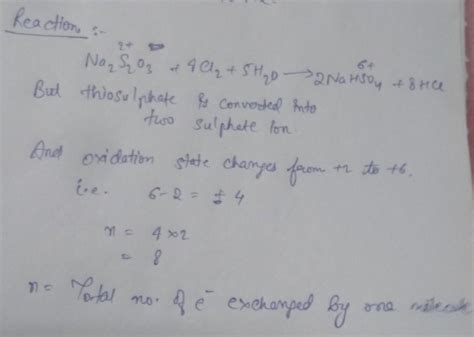 Reaction :-
2+ 6+
Na2S2O3 + 4Cl2 + 5H2O ⟶ 2NaHSO4 + 8HCl
But thiosulphate is converted into
two sulphate ion.
And oxidation state changes from +2 to +6.
i.e. 6-2 = ± 4
n = 4×2
= 8
n = Total no. of e- exchanged by one